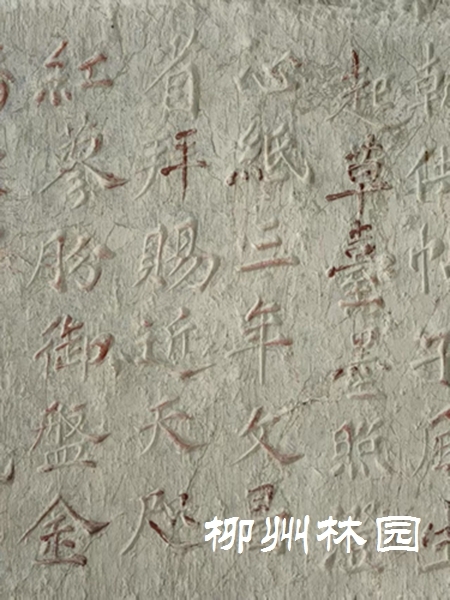 供帖子
起草臺墨照澄
心紙三年文
首拜賜近天咫
紅御盤金
柳州林园